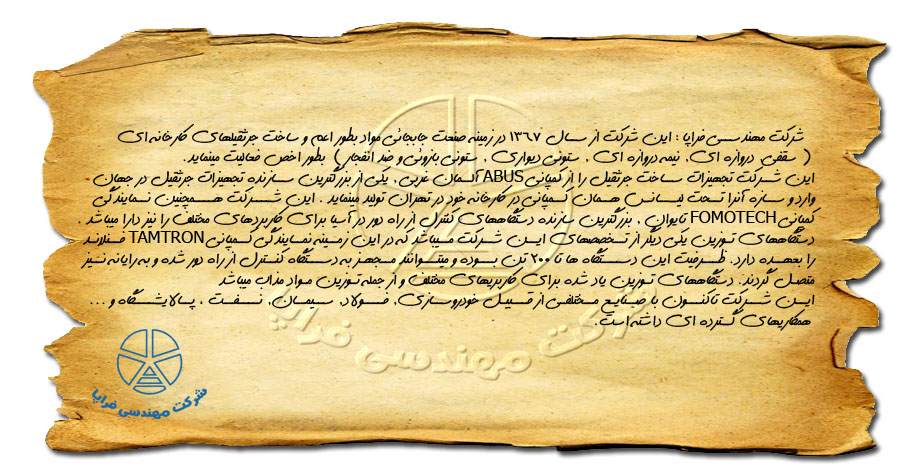 شرکت مهندسی فراپا : این شرکت از سال ۱۳٦۷ در زمینه صنعت جابجائی مواد بطور اعم و ساخت جرثقیلهای کارخانه ای
( سقفی دروازه ای، نیمه دروازه ای ، ستونی دیواری ، ستونی بازوئی و ضد انفجار ) بطور اخص فعالیت مینماید.
این شرکت تجهیزات ساخت جرثقیل را از کمپانی ABUS آلمان غربی ، یکی از بزرگترین سازنده تجهیزات جرثقیل در جهان
وارد و سازه آنرا تحت لیسانس همان کمپانی در کارخانه خود در تهران تولید مینماید . این شرکت همچنین نمایندگی
کمپانی FOMOTECH تایوان ، بزرگترین سازنده دستگاههای کنترل از راه دور در آسیا برای کاربردهای مختلف را نیز دارا میباشد .
دستگاههای توزین یکی دیگر از تخصصهای این شرکت میباشد که در این زمینه نمایندگی کمپانی TAMTRON فنلاند
را بعهده دارد. ظرفیت این دستگاه ها تا ۲۰۰ تن بوده و میتوانند مجهز به دستگاه کنترل از راه دور شده و به رایانه نیز
متصل گردند. دستگاههای توزین یاد شده برای کاربریهای مختلف و از جمله توزین مواد مذاب میباشد
این شرکت تاکنون با صنایع مختلفی از قبیل خودروسازی، فولاد، سیمان، نفت ، پالایشگاه و ...
همکاریهای گسترده ای داشته است.
شرکت مهندسی فراپا
شرکت مهندسی فراپا